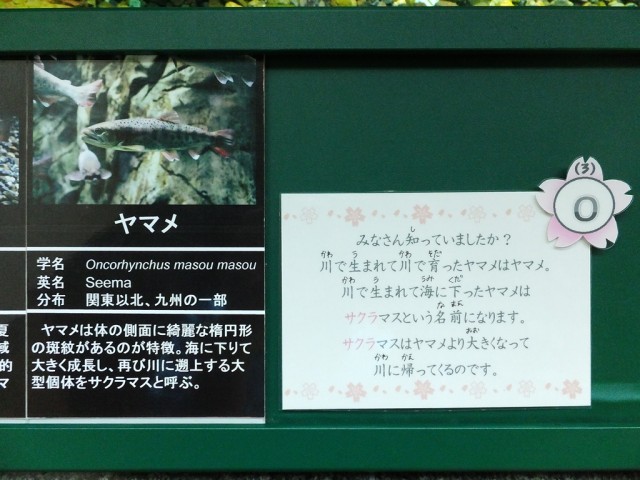 ヤマメ
学名 Oncorhynchus masou masou
英名 Seema
分布 関東以北、九州の一部
ヤマメは体の側面に綺麗な楕円形
の斑紋があるのが特徴。海に下りて
大きく成長し、再び川に遡上する大
型個体をサクラマスと呼ぶ。
夏
域
的
マ
(3)
O
し
みなさん知っていましたか?
かわ う かわ そだ
川で生まれて川で育ったヤマメはヤマメ。
かわ う うみ くだ
川で生まれて海に下ったヤマメは
な まえ
サクラマスという名前になります。
おお
サクラマスはヤマメより大きくなって
かわ かえ
川に帰ってくるのです。